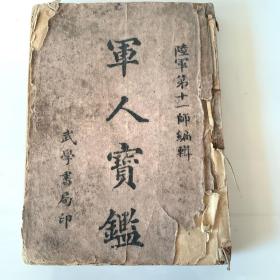 陸軍第十一師編輯
軍人寶鑑
武學書局印